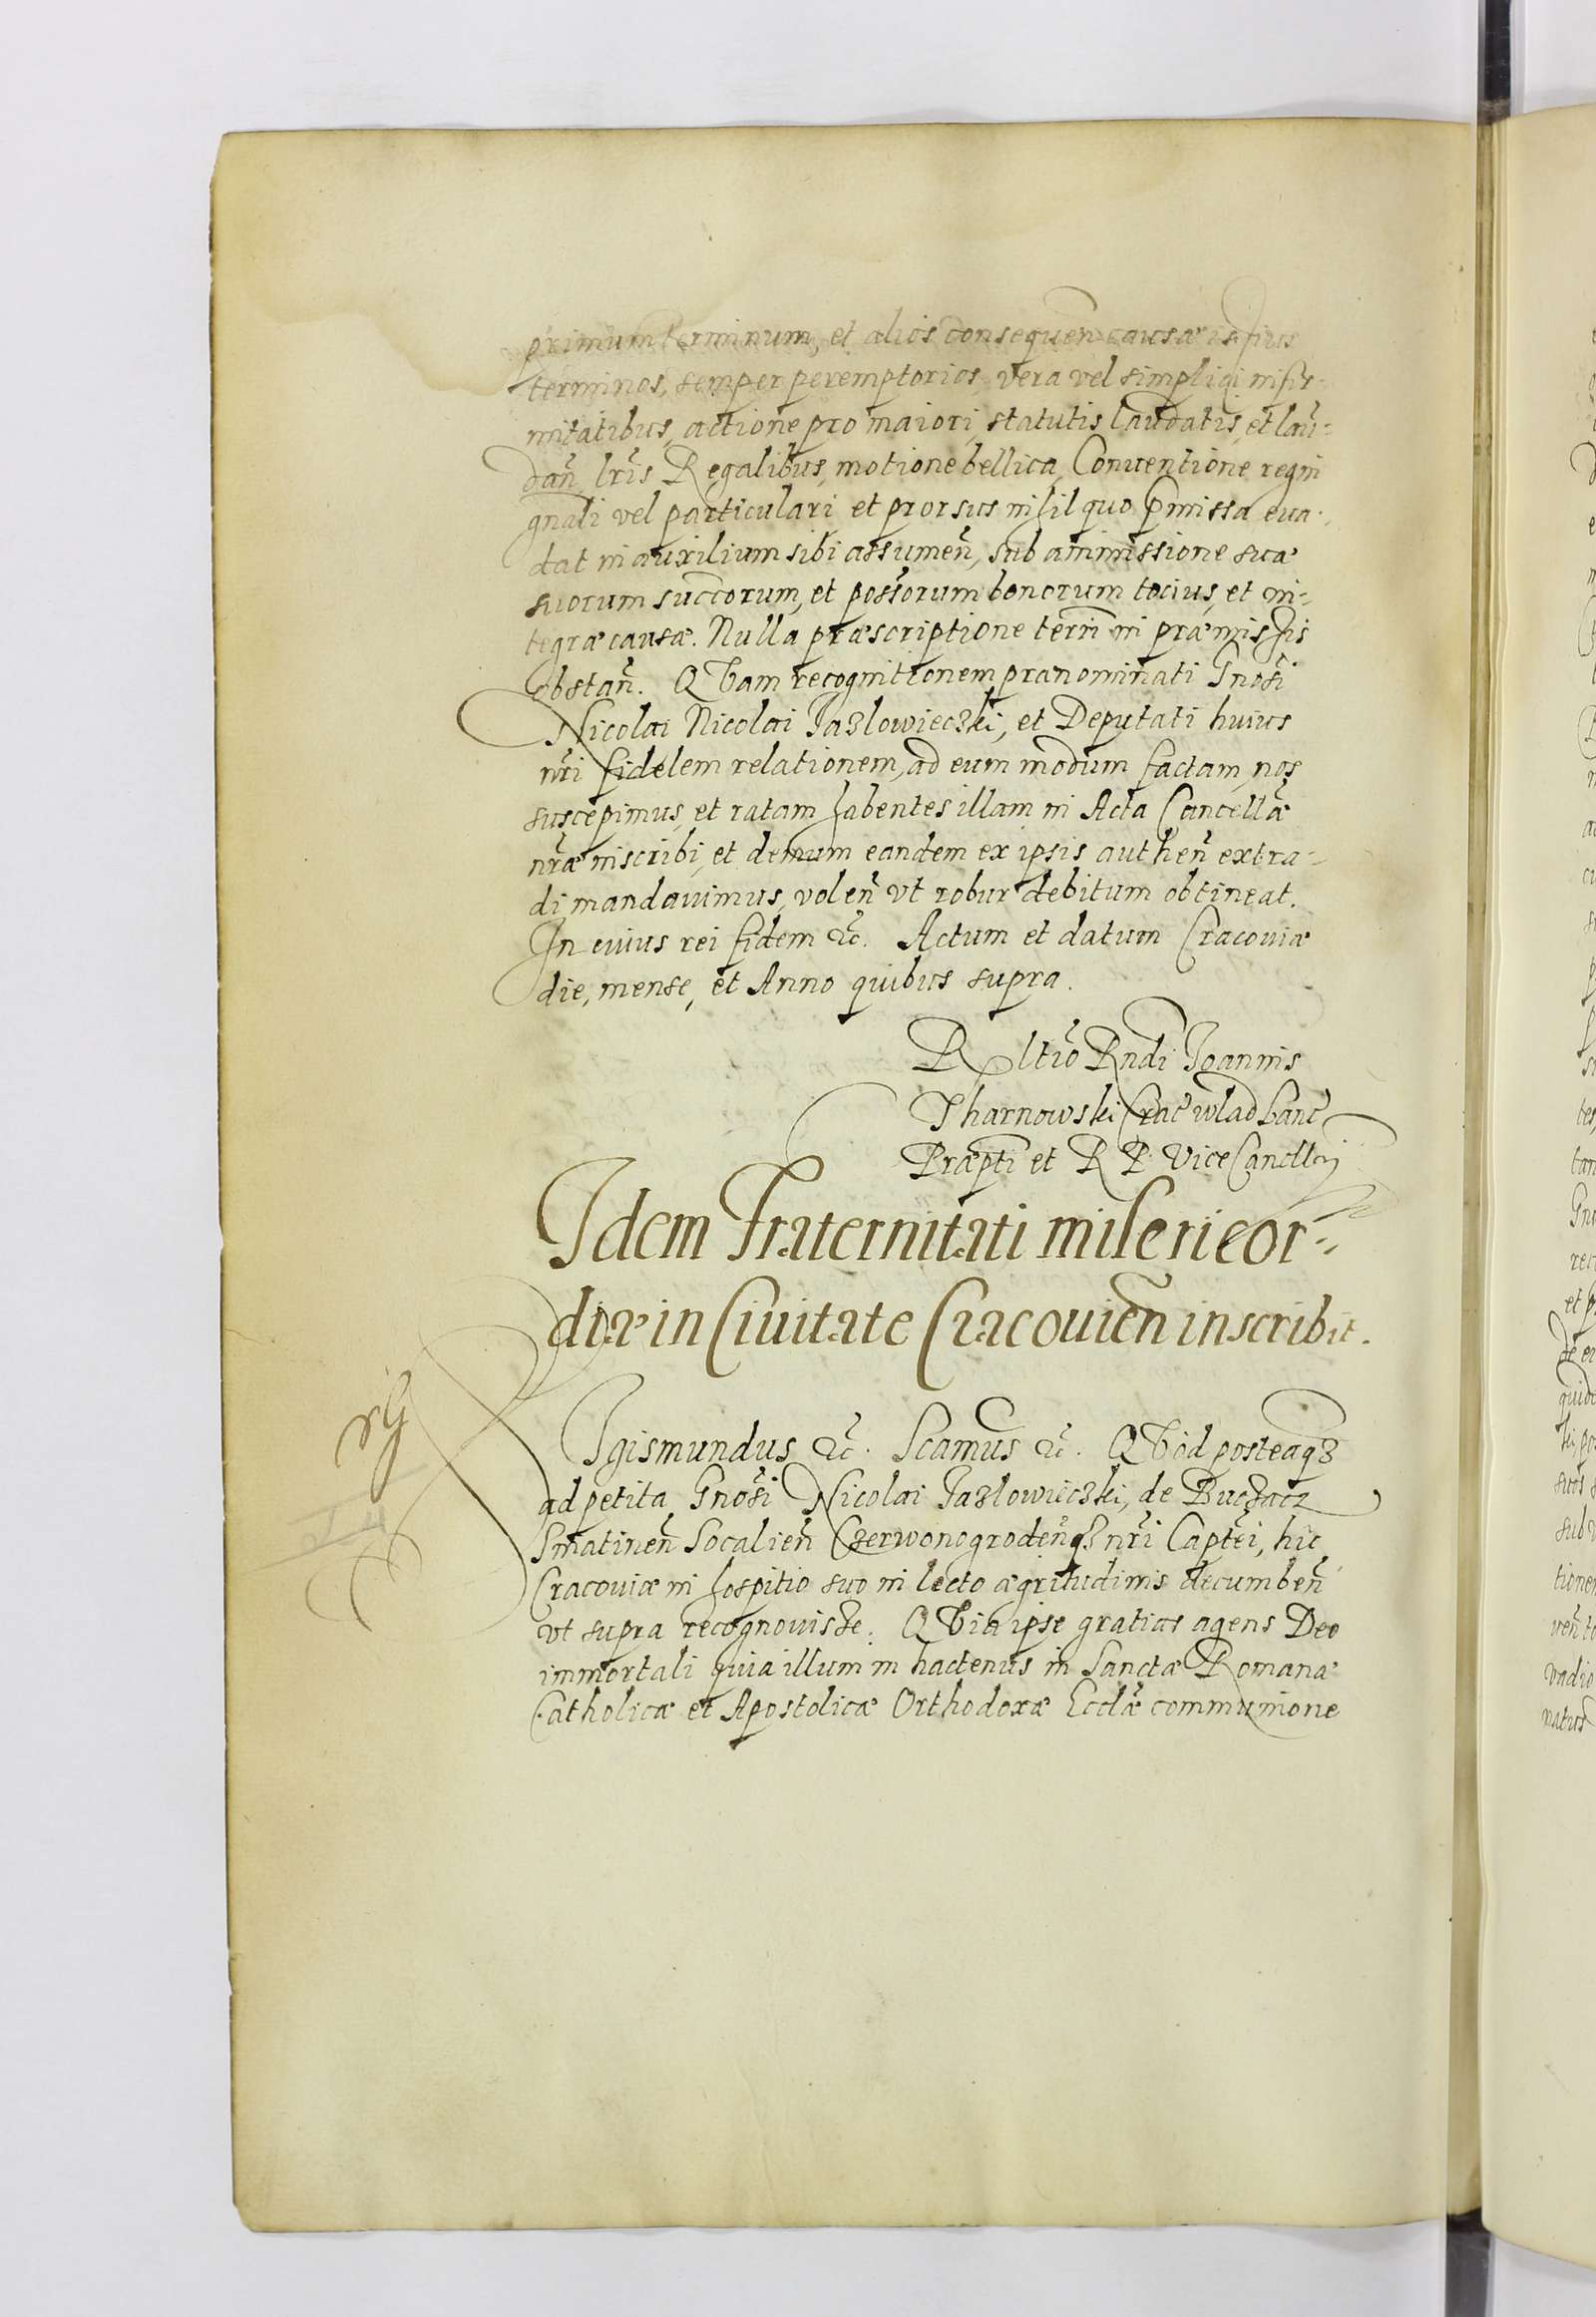 primum terminum, et alios consequen̄ causæ istius
terminos, semper peremptorios, vera vel simplici infir-
mitatibus, actione pro maiori, statutis laudatis, et lau-
dan̄ lr̄is Regalibus, motione bellica, Conuentione regni
gn̄ali vel particulari et prorsus nihil quo p̄missa eua-
dat in auxilium sibi assumen̄, sub ammissione suæ
suorum succ̄orum, et poss̄orum bonorum tocius, et in-
tegræ causæ. Nulla præscriptione terrī in præmissis
obstan̄. QVam recognitionem prænominati Gnos̄i
Nicolai Nicolai Jazlowieczki, et Deputati huius
nr̄i fidelem relationem, ad eum modum factam, nos
suscepimus, et ratam habentes illam in Acta Cancellǣ
nr̄æ inscribi, et demum eandem ex ipsis authen̄ extra-
di mandauimus, volen̄ vt robur debitum obtineat.
In cuius rei fidem &c̄. Actum et datum Cracouiæ
die, mense, et Anno quibus supra.
Rltīo Rndi Joannis
Tharnowski Crac̄ wlad Lanc̄
Præpti et R P. ViceCancllrij
Idem Fraternitati misericor-
diæ in Ciuitate Cracouien̄ inscribit.
SIgismundus &c̄. Scamus &c̄. QVod posteaqз
ad petita Gnos̄i Nicolai Jazlowieczki, de Buczacz
Smatinen̄ Socalien̄ Czerwonogroden̄qз nr̄i Captēi, hic
Cracouiæ in hospitio suo in lecto ægritudinis decumben̄
vt supra recognouisse. QVia ipse gratias agens Deo
immortali quia illum in hactenus in Sanctæ Romanæ
Catholicæ et Apostolicæ Orthodoxæ Ecclǣ communione